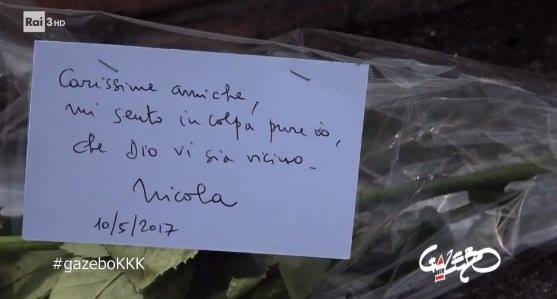 Rai 3HD
Carissime amiche,
mi sento in colpa pure io,
che Dio vi sia vicino.
Nicola
10/5/2017
#gazeboKKK
GAZEBO